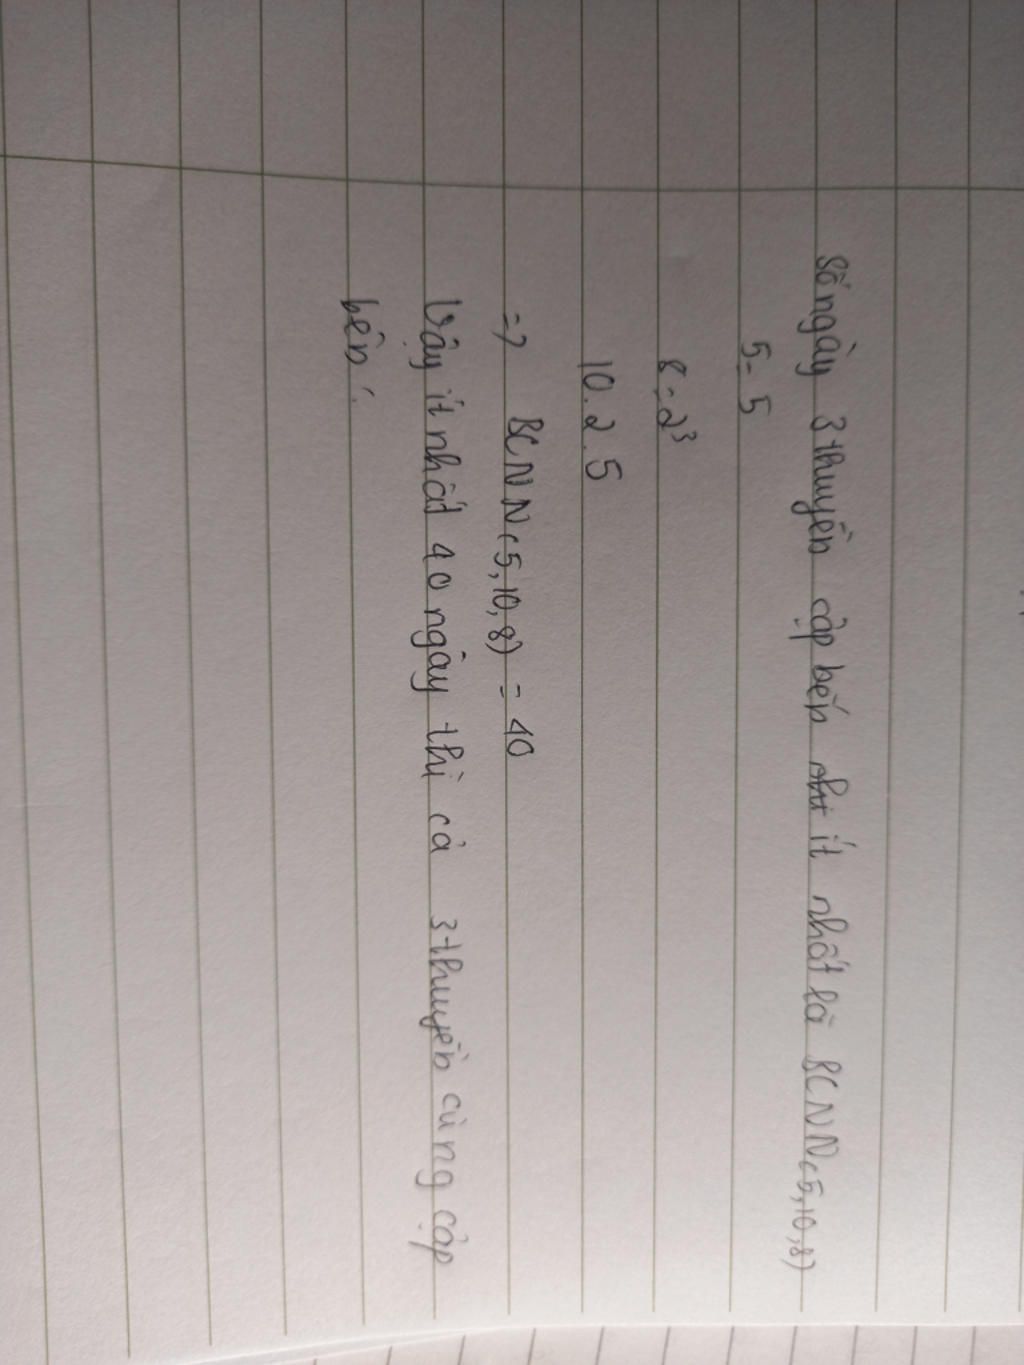 Số ngày 3 thuyền cập bến ít nhất là BCNN(5,10,8)
5 = 5
8 = 2³
10.2.5
=> BCNN(5,10,8) = 40
Vậy ít nhất 40 ngày thì cả 3 thuyền cùng cập
bến.